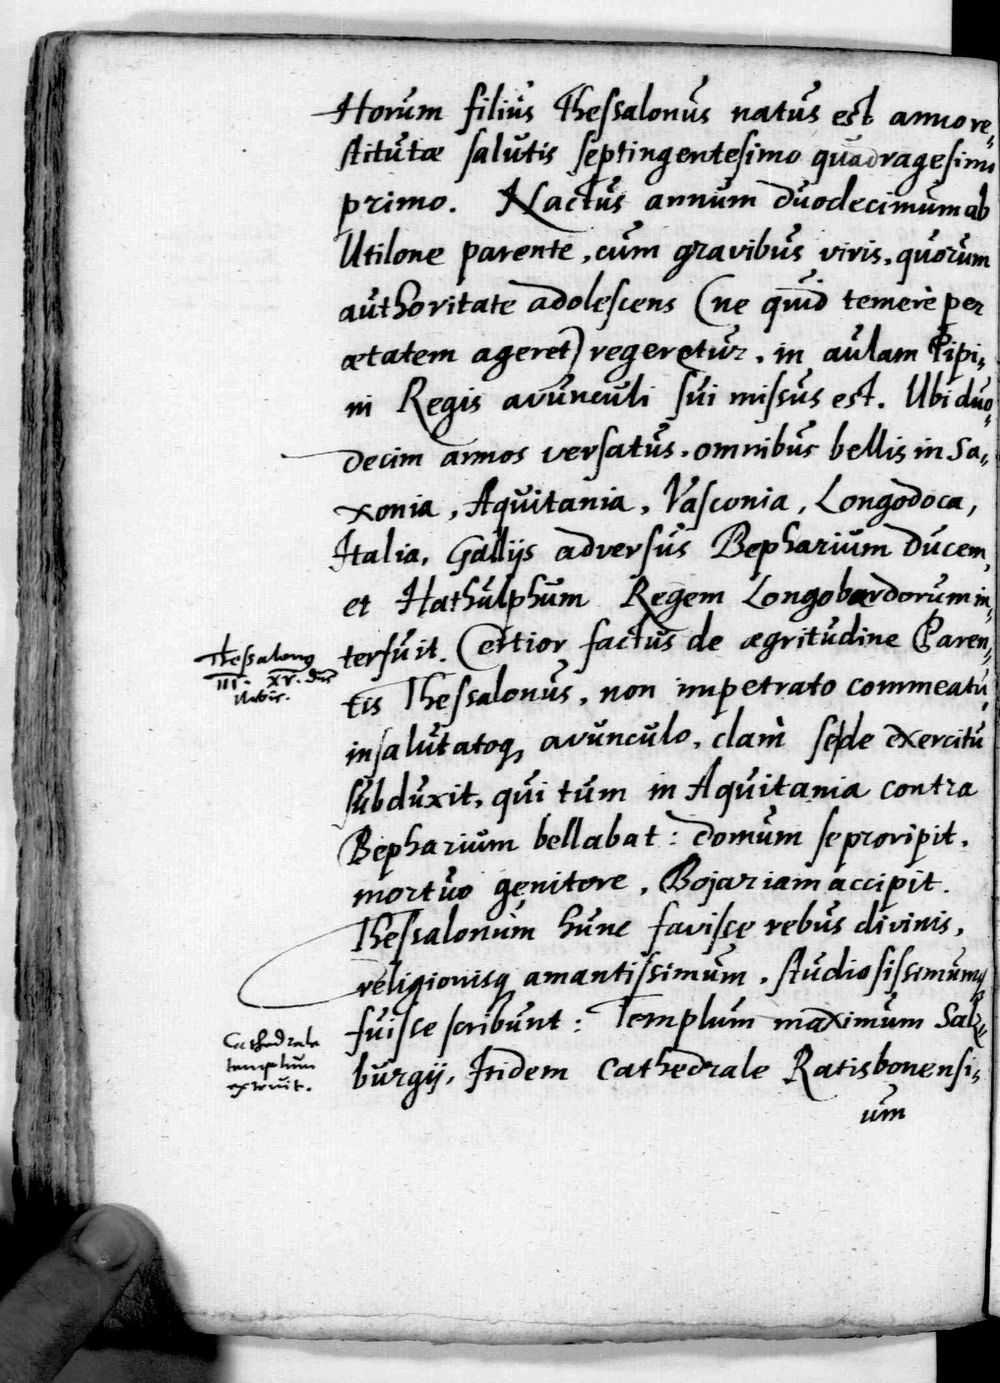 Horum filius Thessalonus natus est anno re„
stitutæ salutis septingentesimo quadragesimo
primo. Nactus annum duodecimum ab
Utilone parente, cum gravibus viris, quorum
authoritate adolescens (ne quid temerè per
ætatem ageret) regeretur, in aulam Pipi„
ni Regis avunculi sui missus est. Ubi duo„
decim annos versatus, omnibus bellis in Sa„
xonia, Aquitania, Vasconia, Longodoca,
Italia, Gallijs adversus Bepharium Ducem,
et Hathulphum Regem Longobardorum in„
terfuit. Certior factus de ægritudine Paren„
tis Thessalonus, non impetrato commeatu,
insalutatoq, avunculo, clam sese de exercitu
subduxit, qui tum in Aquitania contra
Bepharium bellabat: domum se proripit,
mortuo genitore, Bojariam accipit.
Thessalonum hunc favisse rebus divinis,
religionisq amantissimum, studiosissimumq
fuisse scribunt: Templum maximum Salz„
burgij, Itidem Cathedrale Ratisbonensi„
um
Thessalong
III. XV. dux
Cathedrale
templum
extruit.